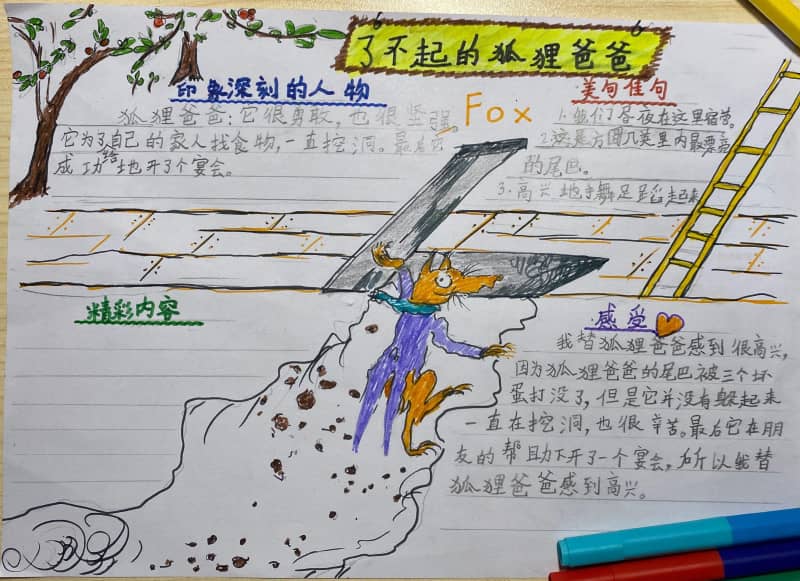 了不起的狐狸爸爸
印象深刻的人物
狐狸爸爸:它很勇敢,也很坚强。
它为了自己的家人找食物,一直挖洞。最后它
成功给地开了个宴会。
Fox
美句佳句
1. 他们昼夜在这里宿营。
2. 这是方圆几英里内最要
的尾巴。
3. 高兴地手舞足蹈起来
精彩内容
感受
我替狐狸爸爸感到很高兴,
因为狐狸爸爸的尾巴被三个坏
蛋打没了,但是它并没有躲起来
一直在挖洞,也很辛苦。最后它在朋
友的帮助下开了一个宴会,所以我替
狐狸爸爸感到高兴。